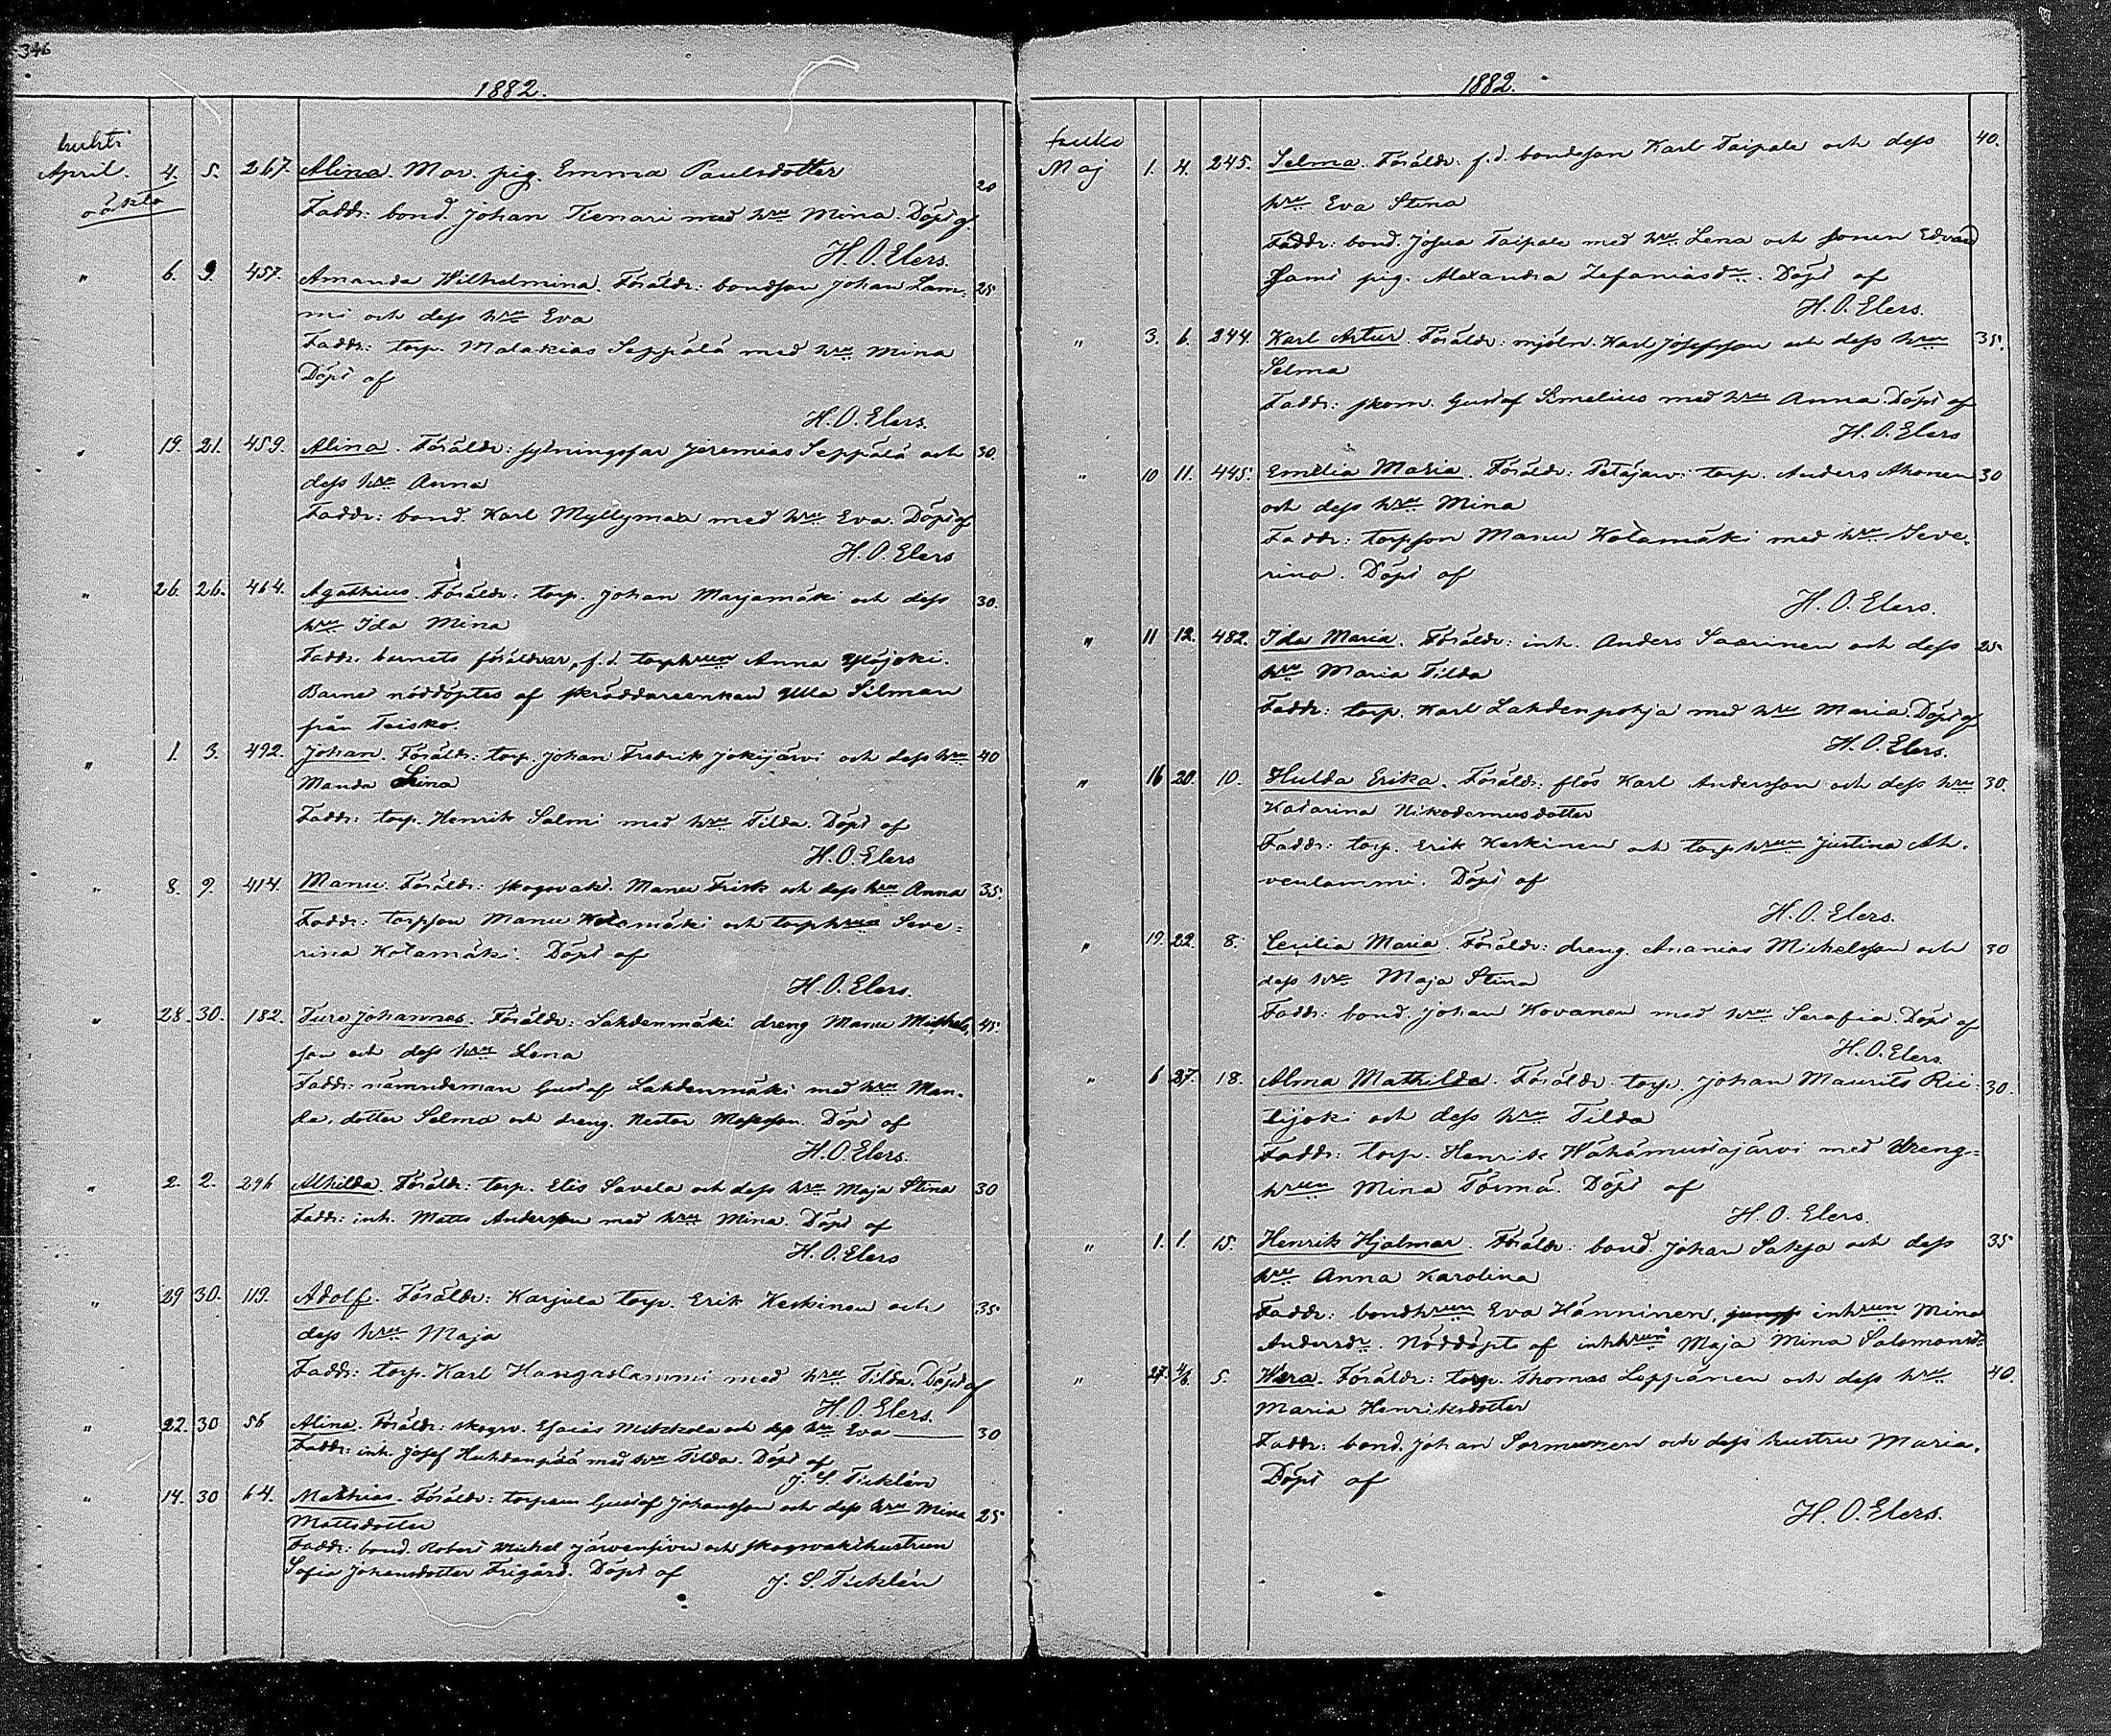 346
1882.
huhti
April. 4. 5. 267. Alina. Mor. pig. Emma Paulsdotter 20
Faddr: bond. Johan Tienari med hru Mina. Döpt af
H. O. Elers.
" 6. 9. 457. Amanda Wilhelmina. Föräldr: bondson Johan Lam- 25
mi och dess hru Eva
Faddr: torp. Malakias Seppälä med hru Mina
Döpt af
H. O. Elers.
" 19. 21. 459. Alina. Föräldr: sytningsfar Jeremias Seppälä och 30.
dess hru Anna
Faddr: bond. Karl Myllymaa med hru Eva. Döpt af
H. O. Elers
" 26. 26. 464. Agathius. Föräldr: torp. Johan Marjamäki och dess 30.
hru Ida Mina
Faddr. barnets föräldrar, f.d. torphrun Anna Yläjoki.
Barnet nöddöptes af skräddareenkan Ulla Silman
från Teisko.
" 1. 3. 492. Johan. Föräldr: torp. Johan Fredrik Jokijärvi och dess hru 40
Manda Lina
Faddr: torp. Henrik Salmi med hru Tilda. Döpt af
H. O. Elers
" 8. 9. 414. Manu. Föräldr: skogsvakt. Manu Frisk och dess hru Anna 35.
Faddr: torpson Manu Kotamäki och torphrun Seve-
rina Kotamäki. Döpt af
H. O. Elers.
" 28. 30. 182. Ture Johannes. Föräldr: Lahdenmäki dreng Manu Mickels- 45.
son och dess hru Lena
Faddr: nämndeman Gustaf Lahdenmäki med hru Man-
da, dotter Selma och dreng. Nestor Mosesson. Döpt af
H. O. Elers.
" 2. 2. 296 Alhilda. Föräldr: torp. Elis Savela och dess hru Maja Stina 30
Faddr: inh. Matts Andersson med hru Mina. Döpt af
H. O. Elers
" 29 30. 119. Adolf. Föräldr: Karjula torp. Erik Keskinen och 35
dess hru Maja
Faddr: torp. Karl Hangaslammi med hru Tilda. Döpt af
H. O. Elers.
" 22. 30 56 Alina. Föräldr: skogv. Esaias Mikkola och dess hru Eva 30
Faddr: inh. Josef Huhdanpää med hru Tilda. Döpt af
J. S. Ticklén
" 14. 30 64. Mathias. Föräldr: torparen Gustaf Johansson och dess hru Mina 25
Mattsdotter
Faddr: bond. Robert Mickel Järvensivu och skogvaktshustrun
Sofia Johansdotter Frigård. Döpt af J. S. Ticklén
1882.
Maj 1. 4. 245. Selma. Föräldr: f.d. bondeson Karl Taipale och dess 40.
hru Eva Stina
Faddr: bond. Josua Taipale med hru Lena och sonen Edvard
samt pig. Alexandra Zefaniasdr. Döpt af
H. O. Elers.
" 3. 6. 244. Karl Artur. Föräldr: mjöln. Karl Josefsson och dess hru 35.
Selma
Faddr: skom. Gustaf Simelius med hru Anna. Döpt af
H. O. Elers
" 10 11. 445. Emelia Maria. Föräldr: Petäjärvi torp. Anders Ahonen 30
och dess hru Mina
Faddr: torpson Manu Kotamäki med hru Seve-
rina. Döpt af
H. O. Elers.
" 11 12. 482. Ida Maria. Föräldr: inh. Anders Saarinen och dess 25
hru Maria Tilda
Faddr: torp. Karl Lahdenpohja med hru Maria. Döpt af
H. O. Elers.
" 16 20. 10. Hulda Erika. Föräldr: flös Karl Andersson och dess hru 30.
Katarina Nikodemusdotter
Faddr: torp. Erik Keskinen och torphrun Justina Ah-
venlammi. Döpt af
H. O. Elers.
" 19. 22. 8. Cecilia Maria. Föräldr: dreng. Ananias Mickelsson och 30
dess hru Maja Stina
Faddr: bond. Johan Kovanen med hru Serafia. Döpt af
H. O. Elers.
" 6 27. 18. Alma Mathilda. Föräldr: torp. Johan Maurits Rie- 30.
tijoki och dess hru Tilda
Faddr: torp. Henrik Hähämustajärvi med dreng-
hrun Mina Törmä. Döpt af
H. O. Elers.
" 1. 1. 15. Henrik Hjalmar. Föräldr: bond. Johan Saksa och dess 35
hru Anna Karolina
Faddr: bondhrun Eva Hänninen, inhrun Mina
Andersdr. Nöddöpte af inhhrun Maja Mina Salomonsdr.
" 27. 4/6. 5. Wera. Föräldr: torp. Thomas Leppänen och dess hru 40.
Maria Henriksdotter
Faddr: bond. Johan Sormunen och dess hustru Maria.
Döpt af
H. O. Elers.